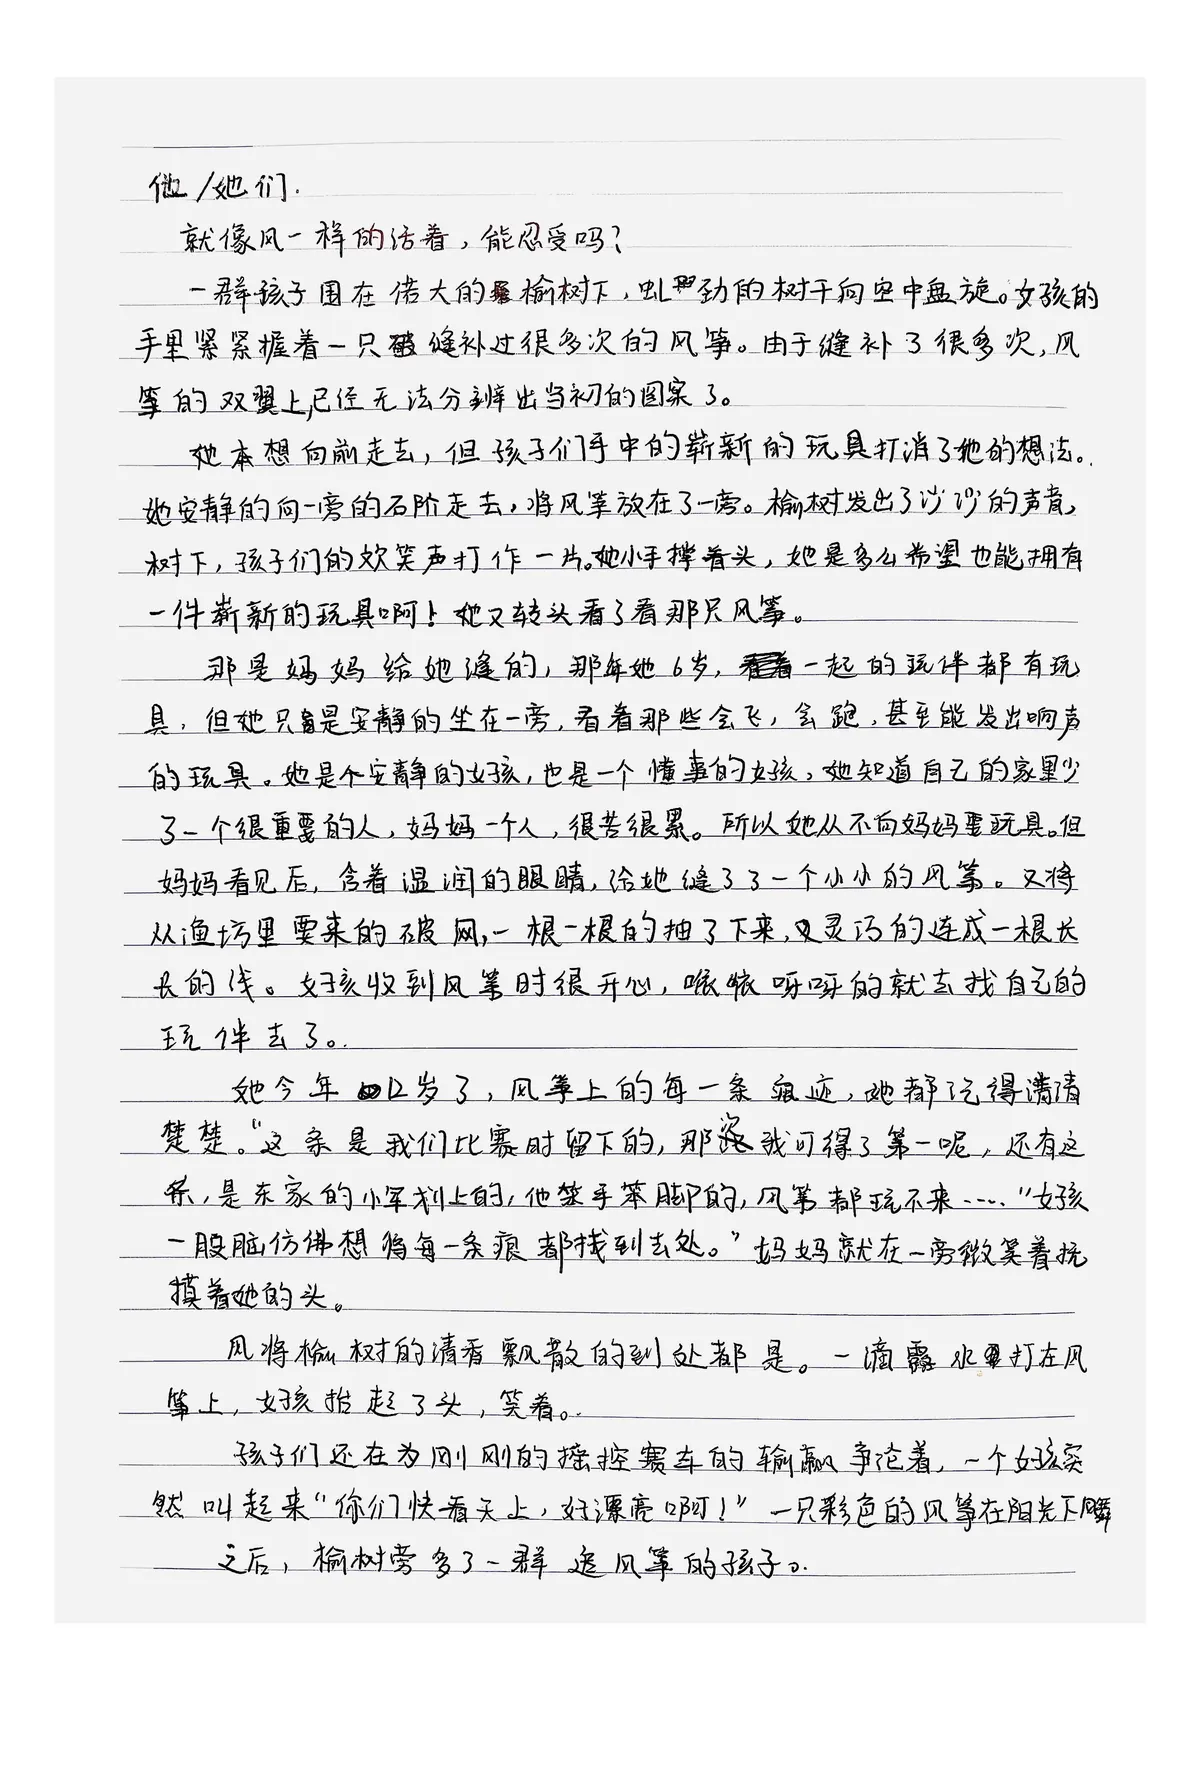 他/她们.
就像风一样的活着，能忍受吗？
一群孩子围在偌大的榆树下，虬劲的树干向空中盘旋。女孩的
手里紧紧握着一只破缝补过很多次的风筝。由于缝补了很多次，风
筝的双翼上，已经无法分辨出当初的图案了。
她本想向前走去，但孩子们手中的崭新的玩具打消了她的想法。
她安静的向一旁的石阶走去，将风筝放在了一旁。榆树发出了沙沙的声音，
树下，孩子们的欢笑声打作一片。她小手撑着头，她是多么希望也能拥有
一件崭新的玩具啊！她又转头看了看那只风筝。
那是妈妈给她缝的，那年她6岁，一起的玩伴都有玩
具，但她只是安静的坐在一旁，看着那些会飞，会跑，甚至能发出响声
的玩具。她是个安静的女孩，也是一个懂事的女孩，她知道自己的家里少
了一个很重要的人，妈妈一个人，很苦很累。所以她从不向妈妈要玩具。但
妈妈看见后，含着温润的眼睛，给她缝了了一个小小的风筝。又将
从渔坊里要来的破网，一根一根的抽了下来，又灵巧的连成一根长
长的线。女孩收到风筝时很开心，咿咿呀呀的就去找自己的
玩伴去了。
她今年12岁了，风筝上的每一条痕迹，她都记得清清
楚楚。“这条是我们比赛时留下的，那次我可得了第一呢，还有这
条，是东家的小军划上的，他笨手笨脚的，风筝都玩不来……”女孩
一股脑仿佛想将每一条痕都找到去处。”妈妈就在一旁微笑着抚
摸着她的头。
风将榆树的清香飘散的到处都是。一滴露水打在风
筝上，女孩抬起了头，笑着。
孩子们还在为刚刚的摇控赛车的输赢争论着，一个女孩突
然叫起来“你们快看天上，好漂亮啊！”一只彩色的风筝在阳光下
之后，榆树旁多了一群追风筝的孩子。